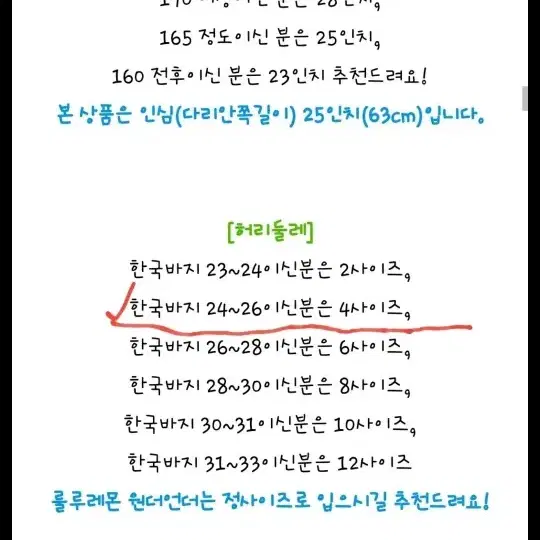 165 정도이신 분은 25인치,
160 전후이신 분은 23인치 추천드려요!
본 상품은 인심(다리안쪽길이) 25인치(63cm)입니다.
[허리둘레]
한국바지 23~24이신분은 2사이즈,
한국바지 24~26이신분은 4사이즈,
한국바지 26~28이신분은 6사이즈,
한국바지 28~30이신분은 8사이즈,
한국바지 30~31이신분은 10사이즈,
한국바지 31~33이신분은 12사이즈
룰루레몬 원더언더는 정사이즈로 입으시길 추천드려요!